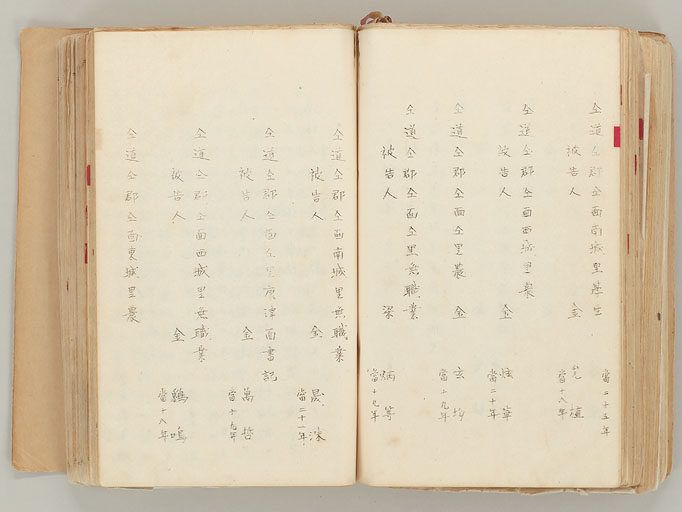 當二十五年
仝道仝郡仝面南城里學生
被告人 金 植
當十八年
仝道仝郡仝面西城里農
被告人 金
當二十年
仝道仝郡仝面仝里農 金 玄
當十九年
仝道仝郡仝面仝里無職業
被告人 梁 炳
當十九年
仝道仝郡仝面南城里無職業
被告人 金 晟
當二十一年
仝道仝郡仝面仝里康津面書記
被告人 金 萬哲
當十九年
仝道仝郡仝面西城里無職業
被告人 金 鶴鳴
當十八年
仝道仝郡仝面東城里農